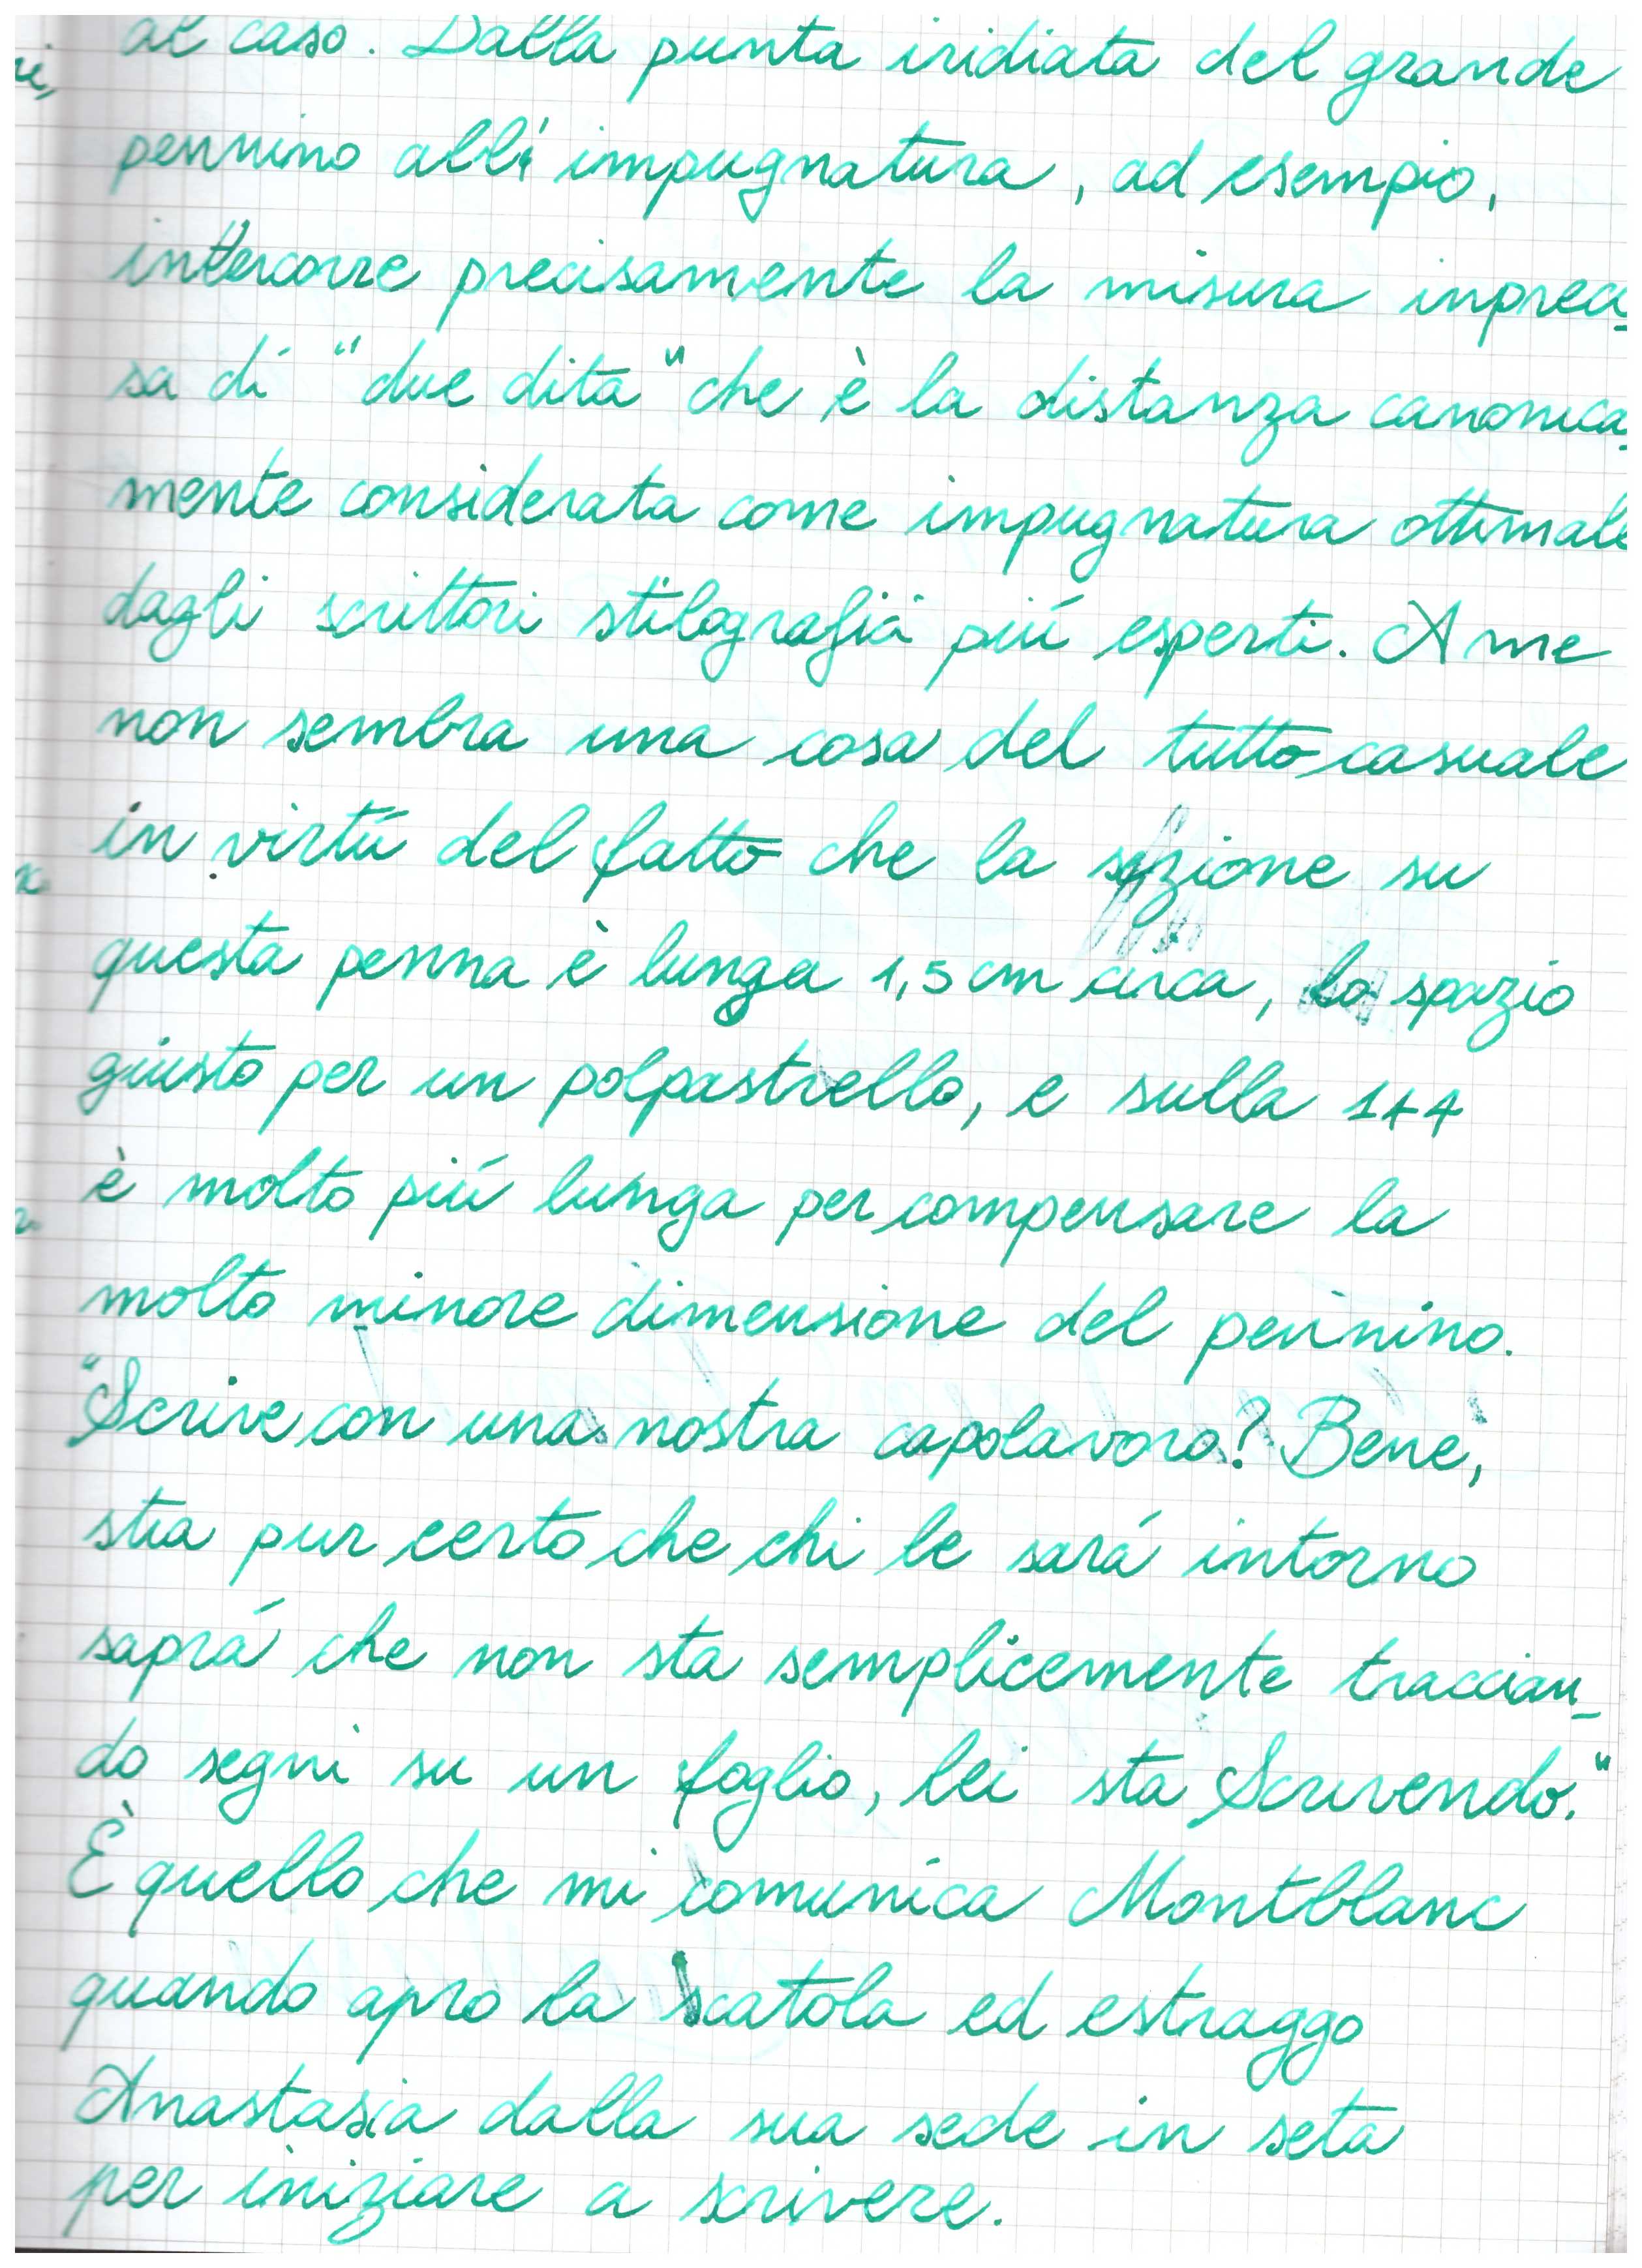 al caso. Dalla punta iridiata del grande
pennino all'impugnatura, ad esempio,
intercorre precisamente la misura inpreci_
sa di "due dita" che è la distanza canonica_
mente considerata come impugnatura ottimale
dagli scrittori stilografici piú esperti. A me
non sembra una cosa del tutto casuale
in virtú del fatto che la sezione su
questa penna è lunga 1,5 cm circa, lo spazio
giusto per un polpastrello, e sulla 144
è molto piú lunga per compensare la
molto minore dimensione del pennino.
"Scrive con una nostra capolavoro? Bene,
stia pur certo che chi le sará intorno
saprá che non sta semplicemente traccian_
do segni su un foglio, lei sta Scrivendo."
È quello che mi comunica Montblanc
quando apro la scatola ed estraggo
Anastasia dalla sua sede in seta
per iniziare a scrivere.